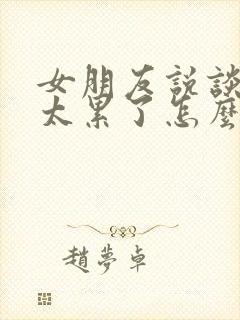 女朋友说談
太累了怎麼
趙夢卓